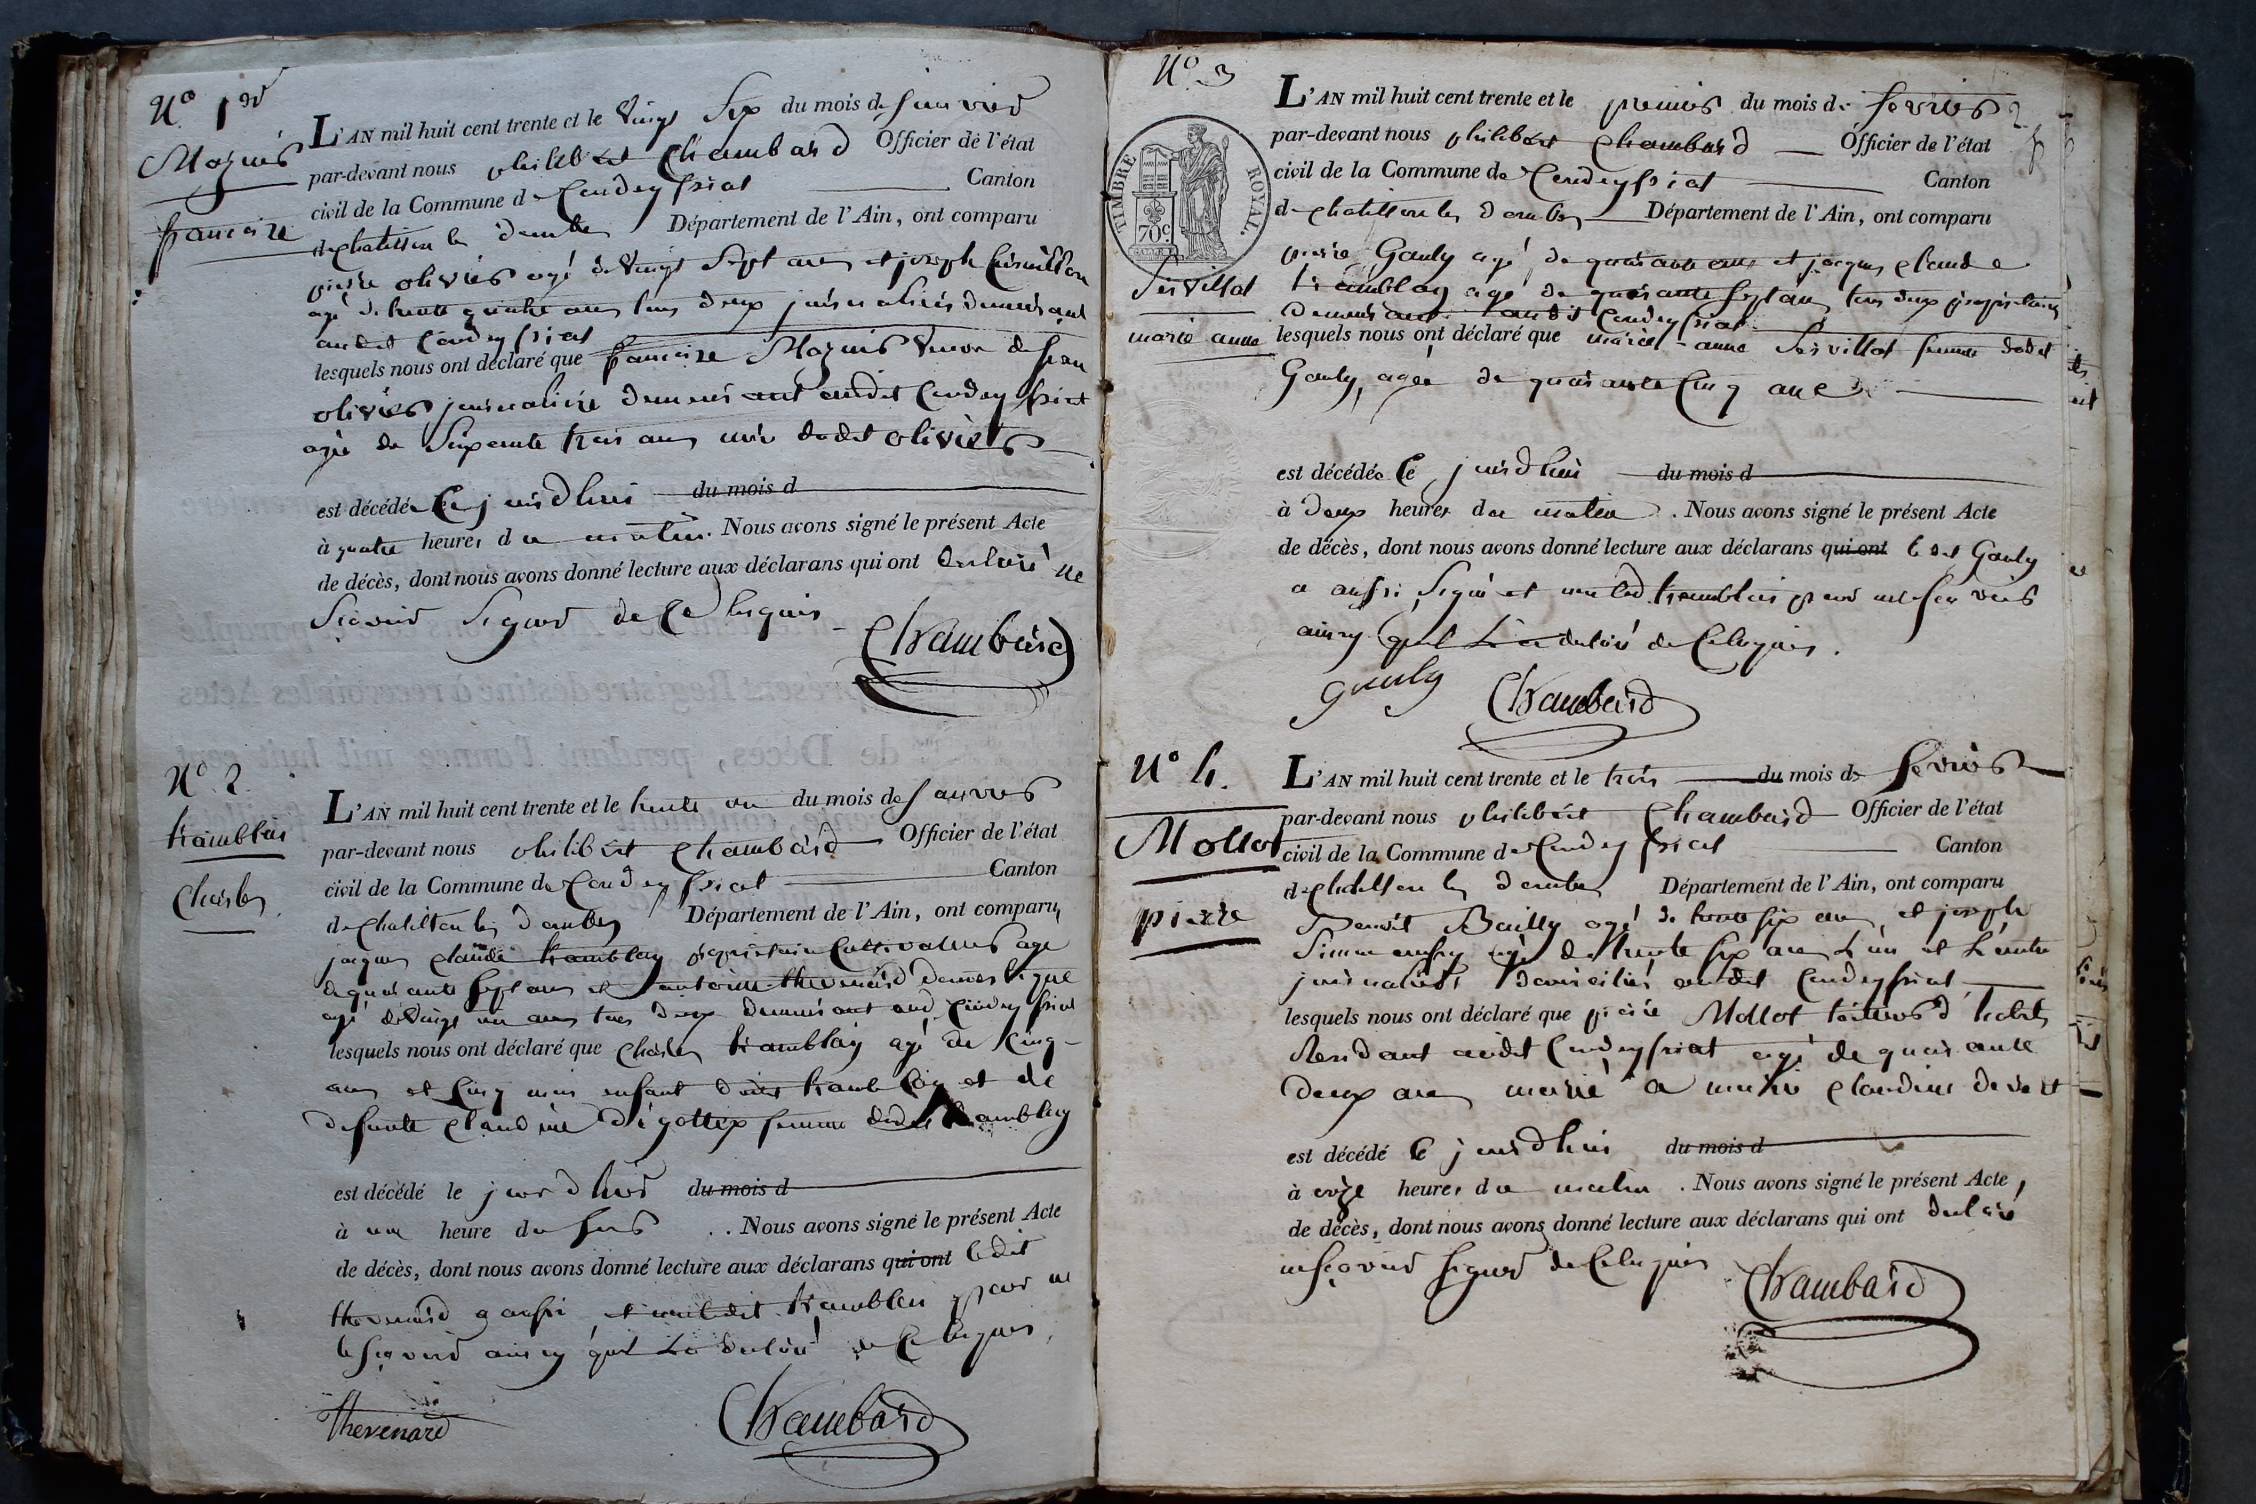 N.o 1er
Mazuis
françoise
L'AN mil huit cent trente et le vingt six du mois de janvier
par-devant nous philibert Chambard Officier de l'état
civil de la Commune de Condeyssiat Canton
de chatillon les dombes Département de l'Ain, ont comparu
pierre olivier agé de vingt sept ans et joseph
agé de trente quatre ans tous deux journaliers demeurant
audit Condeyssiat
lesquels nous ont déclaré que françoise Mazuis veuve de jean
olivier journalière demeurant audit Condeyssiat
agée de soixante trois ans mère dudit olivier
est décédée ce jourdhui du mois d
à quatre heures du matin. Nous avons signé le présent Acte
de décès, dont nous avons donné lecture aux déclarans qui ont declaré ne
sçavoir signer de ce requis
Chambard
N.o 2.
tramblai
Charles
L'AN mil huit cent trente et le trente un du mois de janvier
par-devant nous philibert Chambard Officier de l'état
civil de la Commune de Condeyssiat Canton
de Chatillon les dombes Département de l'Ain, ont comparu
jacques claude tramblay propriétaire Cultivateur agé
de quarante sept ans et antoine thevenard domestique
agé de vingt un ans tous deux demeurant aud. Condeyssiat
lesquels nous ont déclaré que charles tramblay agé de cinq
ans et cinq mois enfant dudit tramblay et de
defunte claudine digottex femme dudit tramblay
est décédé le jourdhui du mois d
à une heure du soir . . Nous avons signé le présent Acte
de décès, dont nous avons donné lecture aux déclarans qui ont ledit
thevenard aussi et non ledit tramblai pour ne
le sçavoir ainsy qu'il l'a declaré de ce requis.
Thevenard Chambard
N.o 3
TIMBRE ROYAL.
70c
Servillat
marie anne
L'AN mil huit cent trente et le premier du mois de fevrier
par-devant nous philibert Chambard Officier de l'état
civil de la Commune de Condeyssiat Canton
de chatillon les dombes Département de l'Ain, ont comparu
pierre Gauly agé de quarante ans et jacques claude
tramblay agé de quarante sept ans tous deux propriétaires
demeurant audit Condeyssiat
lesquels nous ont déclaré que marie anne Servillat femme dudit
Gauly, agée de quarante cinq ans
est décédée ce jourdhui du mois d
à deux heures du matin . Nous avons signé le présent Acte
de décès, dont nous avons donné lecture aux déclarans qui ont ledit Gauly
a aussi signé et non led. tramblai pour ne sçavoir
ainsy qu'il l'a declaré de ce requis.
Gauly Chambard
N.o 4.
Mollot
pierre
L'AN mil huit cent trente et le trois du mois de fevrier
par-devant nous philibert Chambard Officier de l'état
civil de la Commune de Condeyssiat Canton
de chatillon les dombes Département de l'Ain, ont comparu
Benoit Bailly agé de trente six ans et joseph
agé de trente six ans l'un et l'autre
journaliers domiciliés audit Condeyssiat
lesquels nous ont déclaré que pierre Mollot tailleur d'habits
residant audit Condeyssiat agé de quarante
deux ans marié a claudine
est décédé le jourdhui du mois d
à onze heures du matin . Nous avons signé le présent Acte
de décès, dont nous avons donné lecture aux déclarans qui ont declaré
ne sçavoir signer de ce requis
Chambard